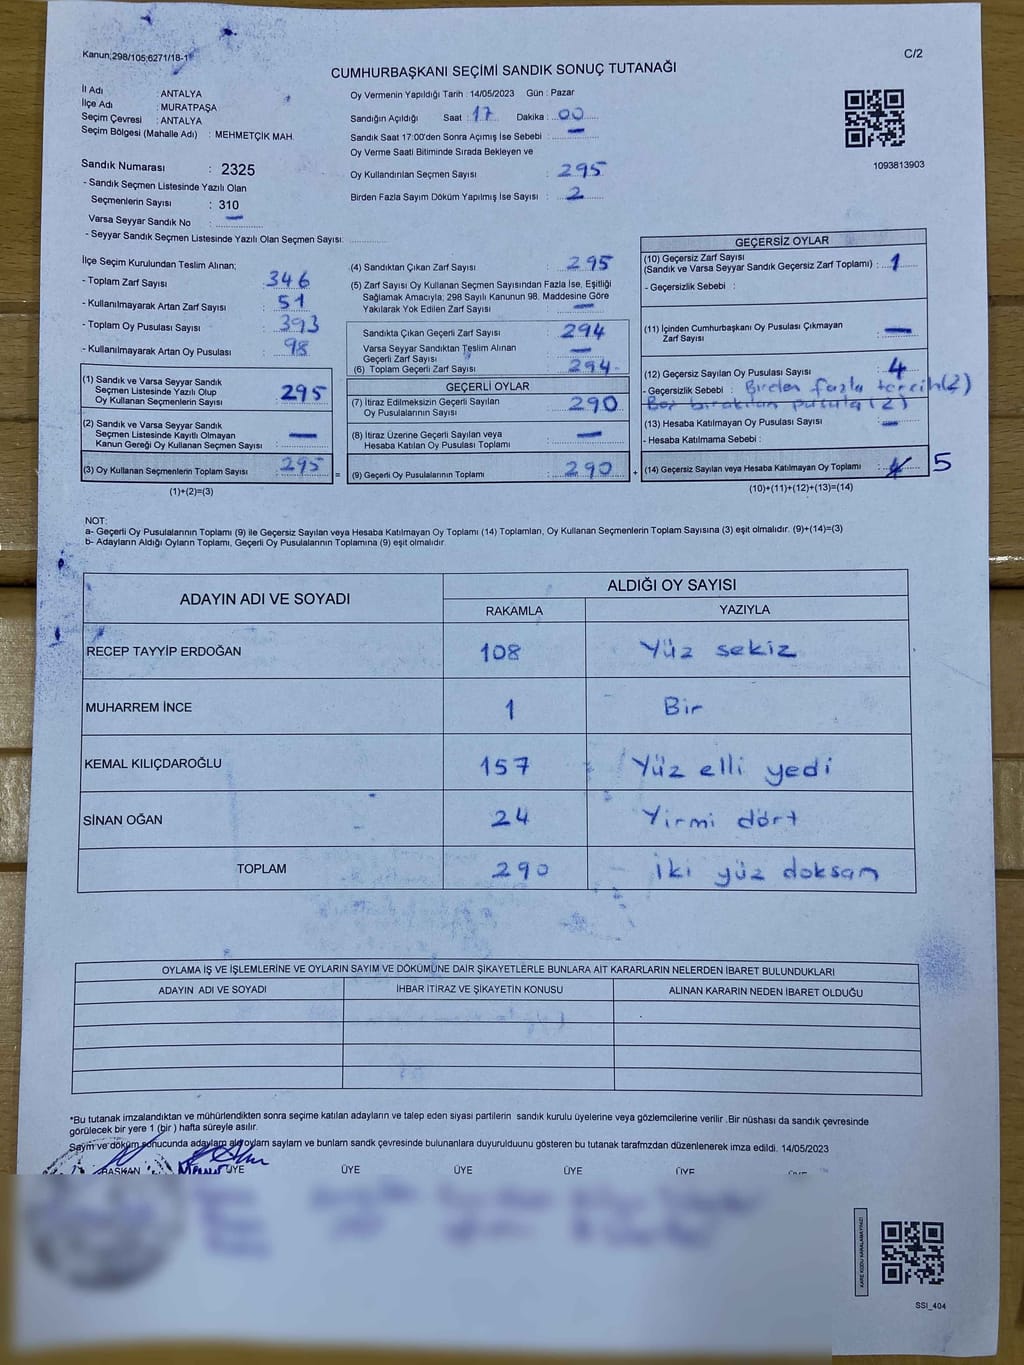 Kanun;298/105;6271/18-1
C/2
CUMHURBAŞKANI SEÇİMİ SANDIK SONUÇ TUTANAĞI
İl Adı : ANTALYA
İlçe Adı : MURATPAŞA
Seçim Çevresi : ANTALYA
Seçim Bölgesi (Mahalle Adı) : MEHMETÇİK MAH.
Sandık Numarası : 2325
- Sandık Seçmen Listesinde Yazılı Olan
Seçmenlerin Sayısı : 310
Varsa Seyyar Sandık No : —
- Seyyar Sandık Seçmen Listesinde Yazılı Olan Seçmen Sayısı:
Oy Vermenin Yapıldığı Tarih : 14/05/2023 Gün : Pazar
Sandığın Açıldığı Saat : 17 Dakika : 00
Sandık Saat 17:00'den Sonra Açımış İse Sebebi : —
Oy Verme Saati Bitiminde Sırada Bekleyen ve
Oy Kullandırılan Seçmen Sayısı : 295
Birden Fazla Sayım Döküm Yapılmış İse Sayısı : 2
1093813903
İlçe Seçim Kurulundan Teslim Alınan;
- Toplam Zarf Sayısı : 346
- Kullanılmayarak Artan Zarf Sayısı : 51
- Toplam Oy Pusulası Sayısı : 393
- Kullanılmayarak Artan Oy Pusulası : 98
(1) Sandık ve Varsa Seyyar Sandık
Seçmen Listesinde Yazılı Olup
Oy Kullanan Seçmenlerin Sayısı : 295
(2) Sandık ve Varsa Seyyar Sandık
Seçmen Listesinde Kayıtlı Olmayan
Kanun Gereği Oy Kullanan Seçmen Sayısı : —
(3) Oy Kullanan Seçmenlerin Toplam Sayısı : 295
(1)+(2)=(3)
=
(4) Sandıktan Çıkan Zarf Sayısı : 295
(5) Zarf Sayısı Oy Kullanan Seçmen Sayısından Fazla İse, Eşitliği
Sağlamak Amacıyla; 298 Sayılı Kanunun 98. Maddesine Göre
Yakılarak Yok Edilen Zarf Sayısı : —
Sandıkta Çıkan Geçerli Zarf Sayısı : 294
Varsa Seyyar Sandıktan Teslim Alınan
Geçerli Zarf Sayısı : —
(6) Toplam Geçerli Zarf Sayısı : 294
GEÇERLİ OYLAR
(7) İtiraz Edilmeksizin Geçerli Sayılan
Oy Pusulalarının Sayısı : 290
(8) İtiraz Üzerine Geçerli Sayılan veya
Hesaba Katılan Oy Pusulası Toplamı : —
(9) Geçerli Oy Pusulalarının Toplamı : 290
+
GEÇERSİZ OYLAR
(10) Geçersiz Zarf Sayısı
(Sandık ve Varsa Seyyar Sandık Geçersiz Zarf Toplamı) : 1
- Geçersizlik Sebebi :
(11) İçinden Cumhurbaşkanı Oy Pusulası Çıkmayan
Zarf Sayısı : —
(12) Geçersiz Sayılan Oy Pusulası Sayısı : 4
- Geçersizlik Sebebi : Birden fazla tercih(2)
Boş bırakılan pusula (2)
(13) Hesaba Katılmayan Oy Pusulası Sayısı : —
- Hesaba Katılmama Sebebi :
(14) Geçersiz Sayılan veya Hesaba Katılmayan Oy Toplamı : 4 5
(10)+(11)+(12)+(13)=(14)
NOT:
a- Geçerli Oy Pusulalarının Toplamı (9) ile Geçersiz Sayılan veya Hesaba Katılmayan Oy Toplamı (14) Toplamları, Oy Kullanan Seçmenlerin Toplam Sayısına (3) eşit olmalıdır. (9)+(14)=(3)
b- Adayların Aldığı Oyların Toplamı, Geçerli Oy Pusulalarının Toplamına (9) eşit olmalıdır.
ADAYIN ADI VE SOYADI
ALDIĞI OY SAYISI
RAKAMLA YAZIYLA
RECEP TAYYİP ERDOĞAN 108 Yüz sekiz
MUHARREM İNCE 1 Bir
KEMAL KILIÇDAROĞLU 157 Yüz elli yedi
SİNAN OĞAN 24 Yirmi dört
TOPLAM 290 İki yüz doksan
OYLAMA İŞ VE İŞLEMLERİNE VE OYLARIN SAYIM VE DÖKÜMÜNE DAİR ŞİKAYETLERLE BUNLARA AİT KARARLARIN NELERDEN İBARET BULUNDUKLARI
ADAYIN ADI VE SOYADI İHBAR İTİRAZ VE ŞİKAYETİN KONUSU ALINAN KARARIN NEDEN İBARET OLDUĞU
*Bu tutanak imzalandıktan ve mühürlendikten sonra seçime katılan adayların ve talep eden siyasi partilerin sandık kurulu üyelerine veya gözlemcilerine verilir .Bir nüshası da sandık çevresinde
görülecek bir yere 1 (bir ) hafta süreyle asılır.
Sayım ve döküm sonucunda adayların oyların sandk çevresinde bulunanlara duyurulduunu gösteren bu tutanak tarafmzdan düzenlenerek imza edildi. 14/05/2023
BAŞKAN ÜYE ÜYE ÜYE ÜYE ÜYE
KARE KODU KARALAMAYINIZ!
SSI_404